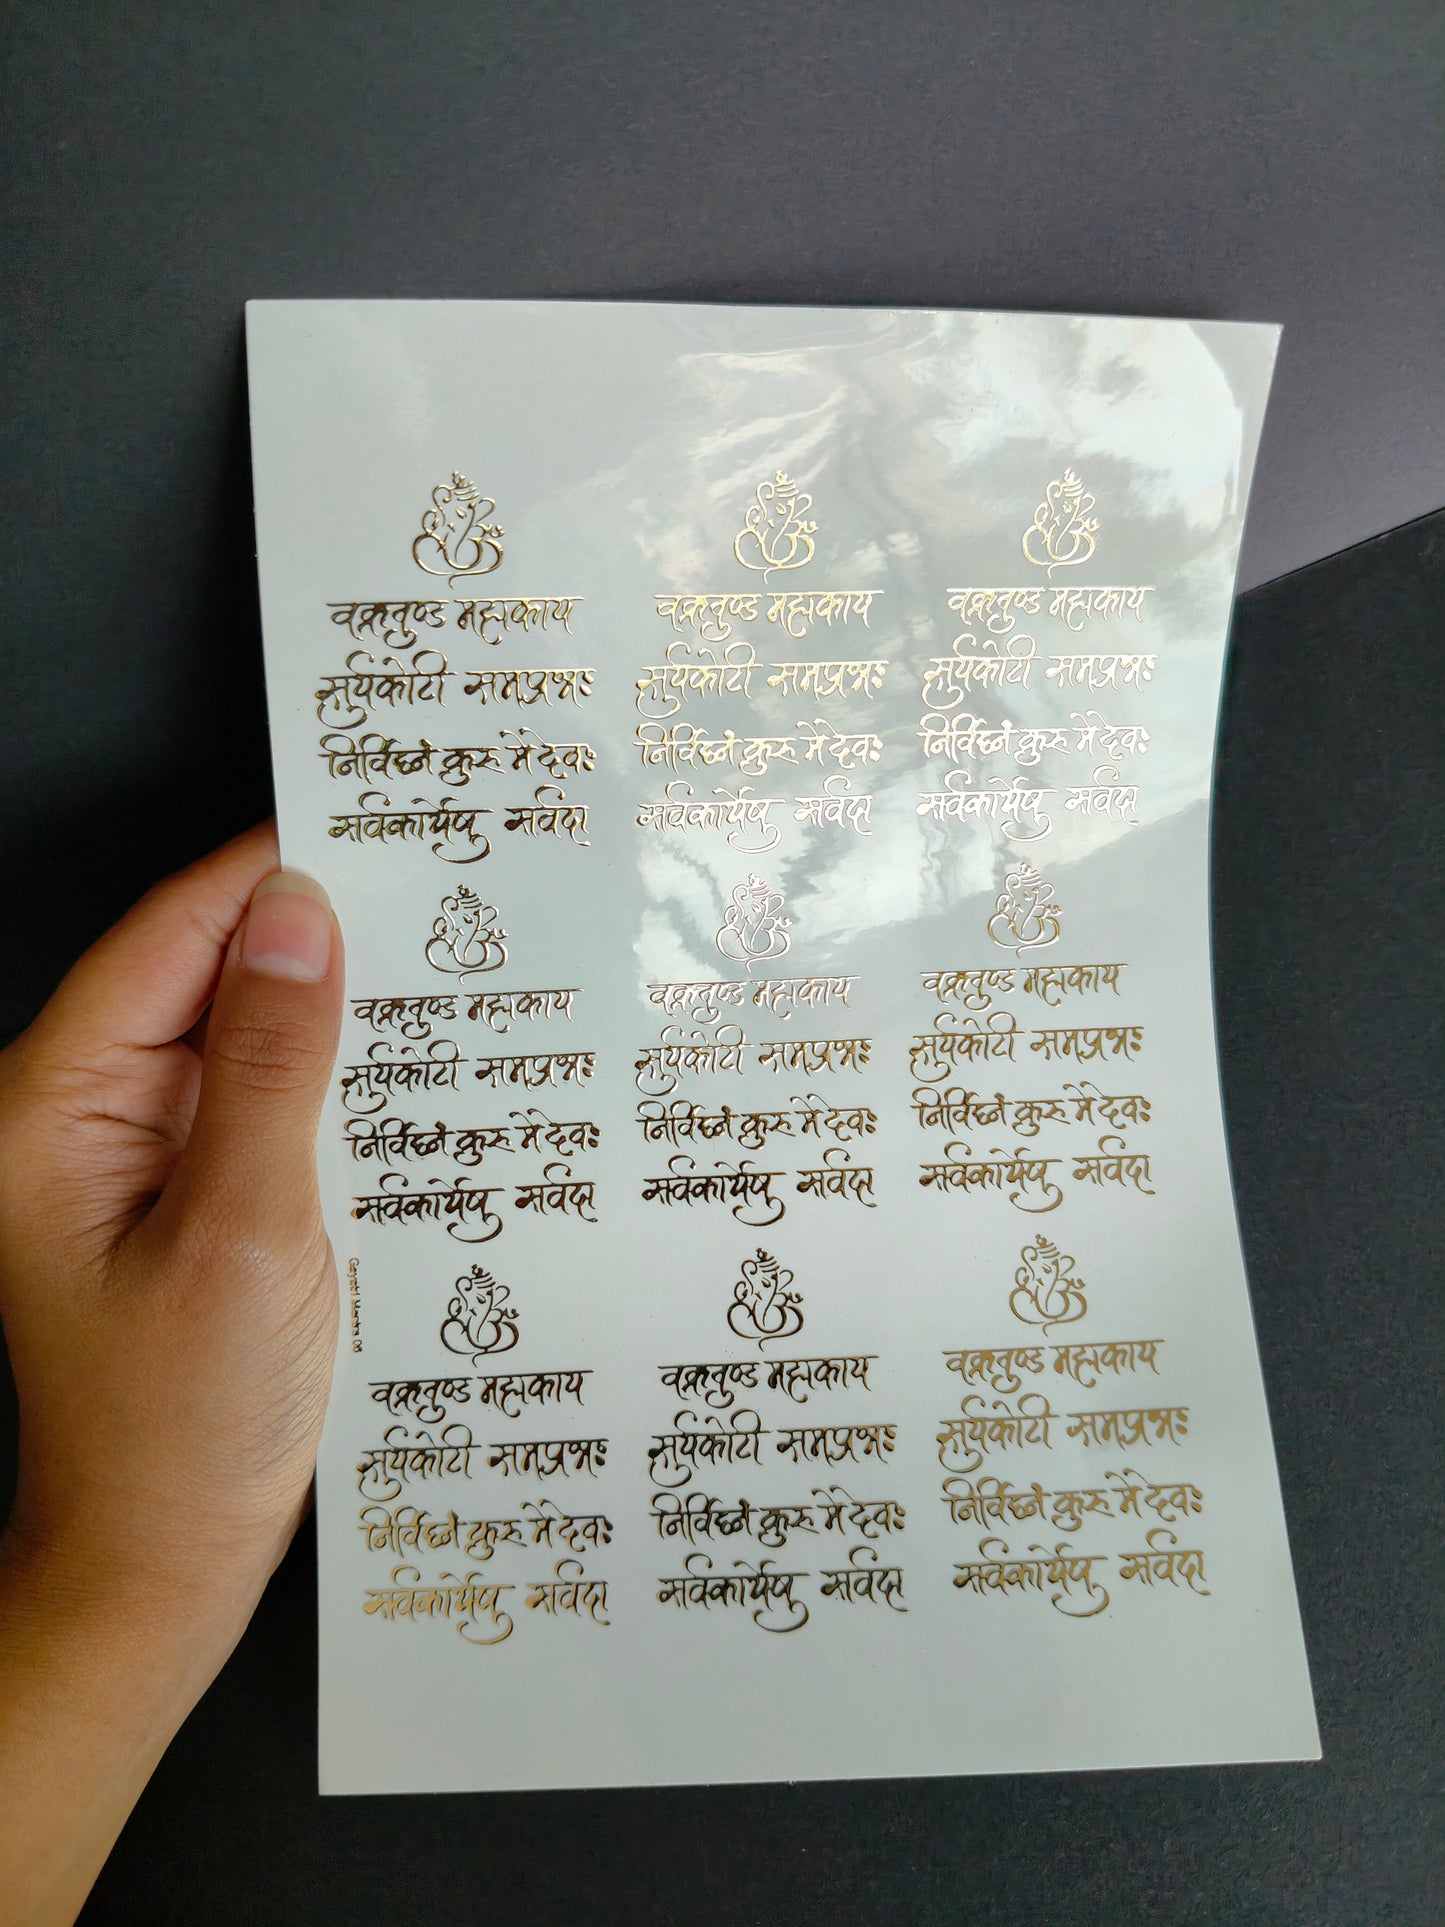 वक्रतुण्ड महाकाय
सुर्यकोटी समप्रभः
निर्विघ्नं कुरु मे देवः
सर्वकार्येषु सर्वदा
वक्रतुण्ड महाकाय
सुर्यकोटी समप्रभः
निर्विघ्नं कुरु मे देवः
सर्वकार्येषु सर्वदा
वक्रतुण्ड महाकाय
सुर्यकोटी समप्रभः
निर्विघ्नं कुरु मे देवः
सर्वकार्येषु सर्वदा
वक्रतुण्ड महाकाय
सुर्यकोटी समप्रभः
निर्विघ्नं कुरु मे देवः
सर्वकार्येषु सर्वदा
वक्रतुण्ड महाकाय
सुर्यकोटी समप्रभः
निर्विघ्नं कुरु मे देवः
सर्वकार्येषु सर्वदा
वक्रतुण्ड महाकाय
सुर्यकोटी समप्रभः
निर्विघ्नं कुरु मे देवः
सर्वकार्येषु सर्वदा
Gayatri Mantra
वक्रतुण्ड महाकाय
सुर्यकोटी समप्रभः
निर्विघ्नं कुरु मे देवः
सर्वकार्येषु सर्वदा
वक्रतुण्ड महाकाय
सुर्यकोटी समप्रभः
निर्विघ्नं कुरु मे देवः
सर्वकार्येषु सर्वदा
वक्रतुण्ड महाकाय
सुर्यकोटी समप्रभः
निर्विघ्नं कुरु मे देवः
सर्वकार्येषु सर्वदा